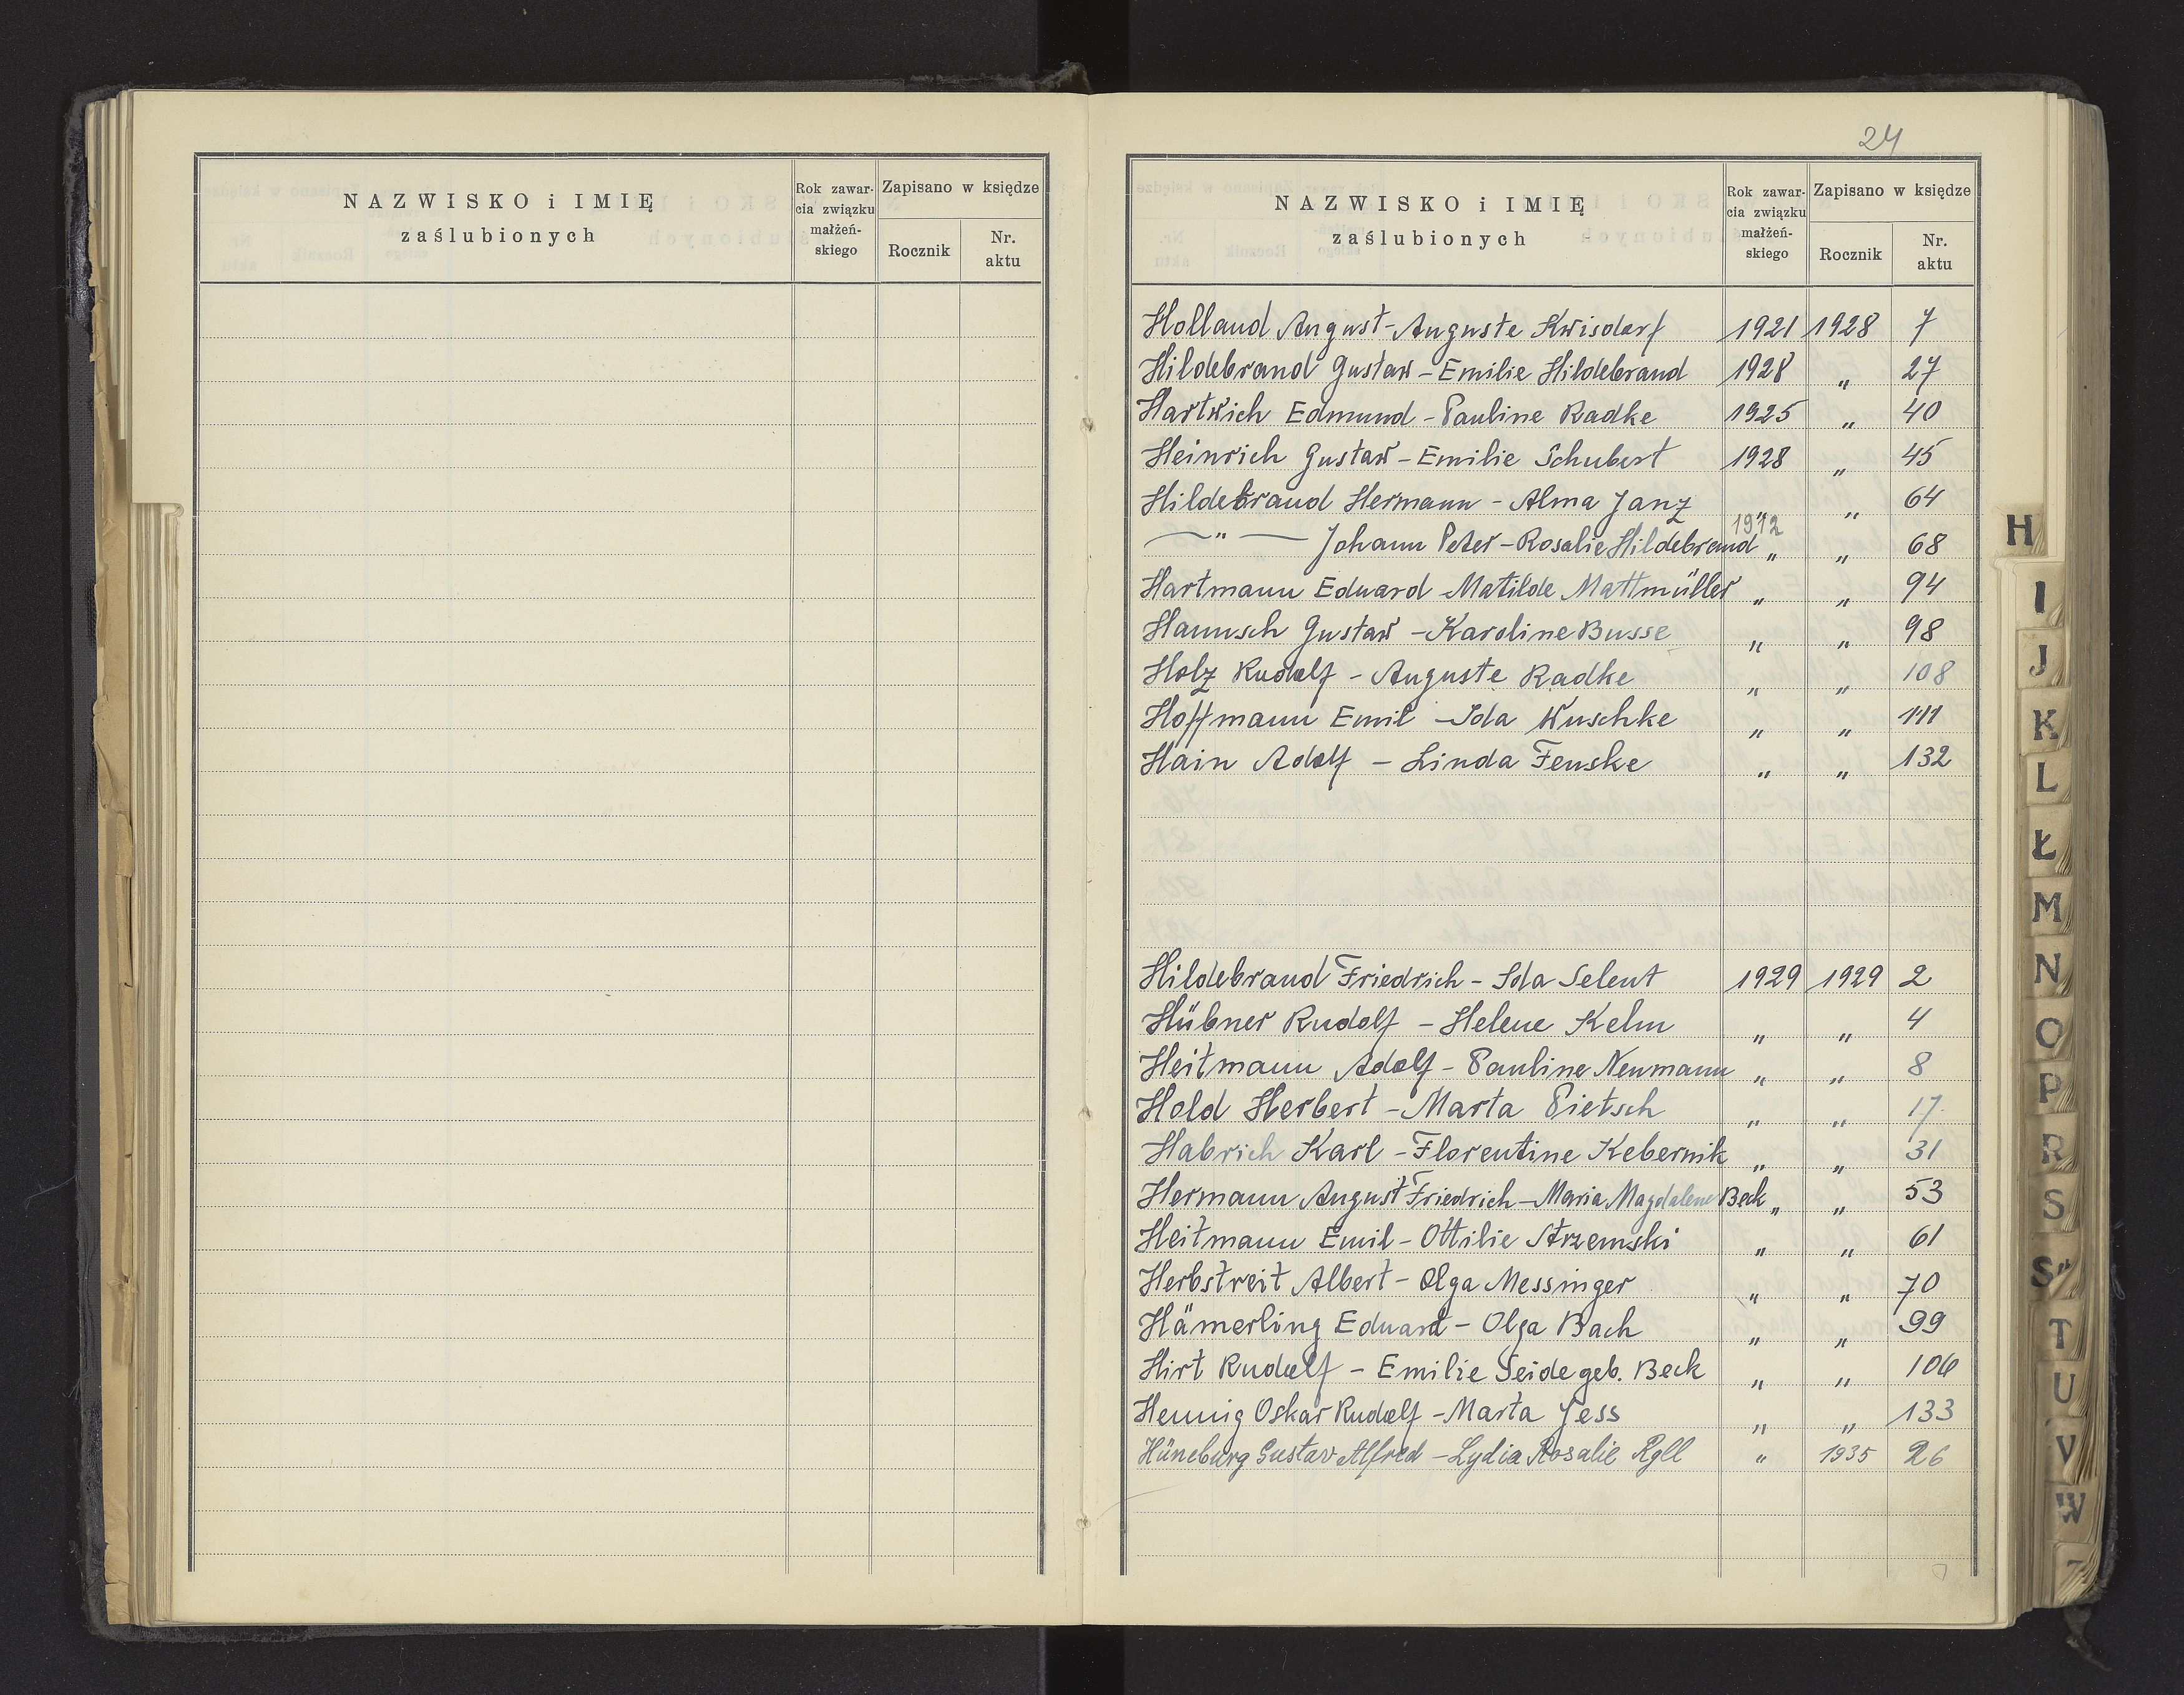 NAZWISKO i IMIĘ
zaślubionych
Rok zawar-
cia związku
małżeń-
skiego
Zapisano w księdze
Rocznik
Nr.
aktu
24
NAZWISKO i IMIĘ
zaślubionych
Rok zawar-
cia związku
małżeń-
skiego
Zapisano w księdze
Rocznik
Nr.
aktu
Holland August - Auguste Kwisdorf 1921 1928 7
Hildebrand Gustaw - Emilie Hildebrand 1928 " 27
Hartwich Edmund - Pauline Radke 1925 " 40
Heinrich Gustaw - Emilie Schubert 1928 " 45
Hildebrand Hermann - Alma Janz " " 64
1912
— " — Johann Peter - Rosalie Hildebrand " " 68
Hartmann Eduard - Matilde Mattmüller " " 94
Haunsch Gustaw - Karoline Busse " " 98
Holz Rudolf - Auguste Radke " " 108
Hoffmann Emil - Ida Wuschke " " 111
Hain Adolf - Linda Fenske " " 132
Hildebrand Friedrich - Ida Selent 1929 1929 2
Hübner Rudolf - Helene Kelm " " 4
Heitmann Adolf - Pauline Neumann " " 8
Hold Herbert - Marta Pietsch " " 17
Habrich Karl - Florentine Kebernik " " 31
Hermann August Friedrich - Maria Magdalene Beck " " 53
Heitmann Emil - Ottilie Strzemski " " 61
Herbstreit Albert - Olga Messinger " " 70
Hämerling Eduard - Olga Bach " " 99
Hirt Rudolf - Emilie Seide geb. Beck " " 106
Hennig Oskar Rudolf - Marta Jess " " 133
Hüneburg Gustav Alfred - Lydia Rosalie Rgll " 1935 26
H
I
J
K
L
Ł
M
N
O
P
R
S
Ś
T
U
V
W
Z